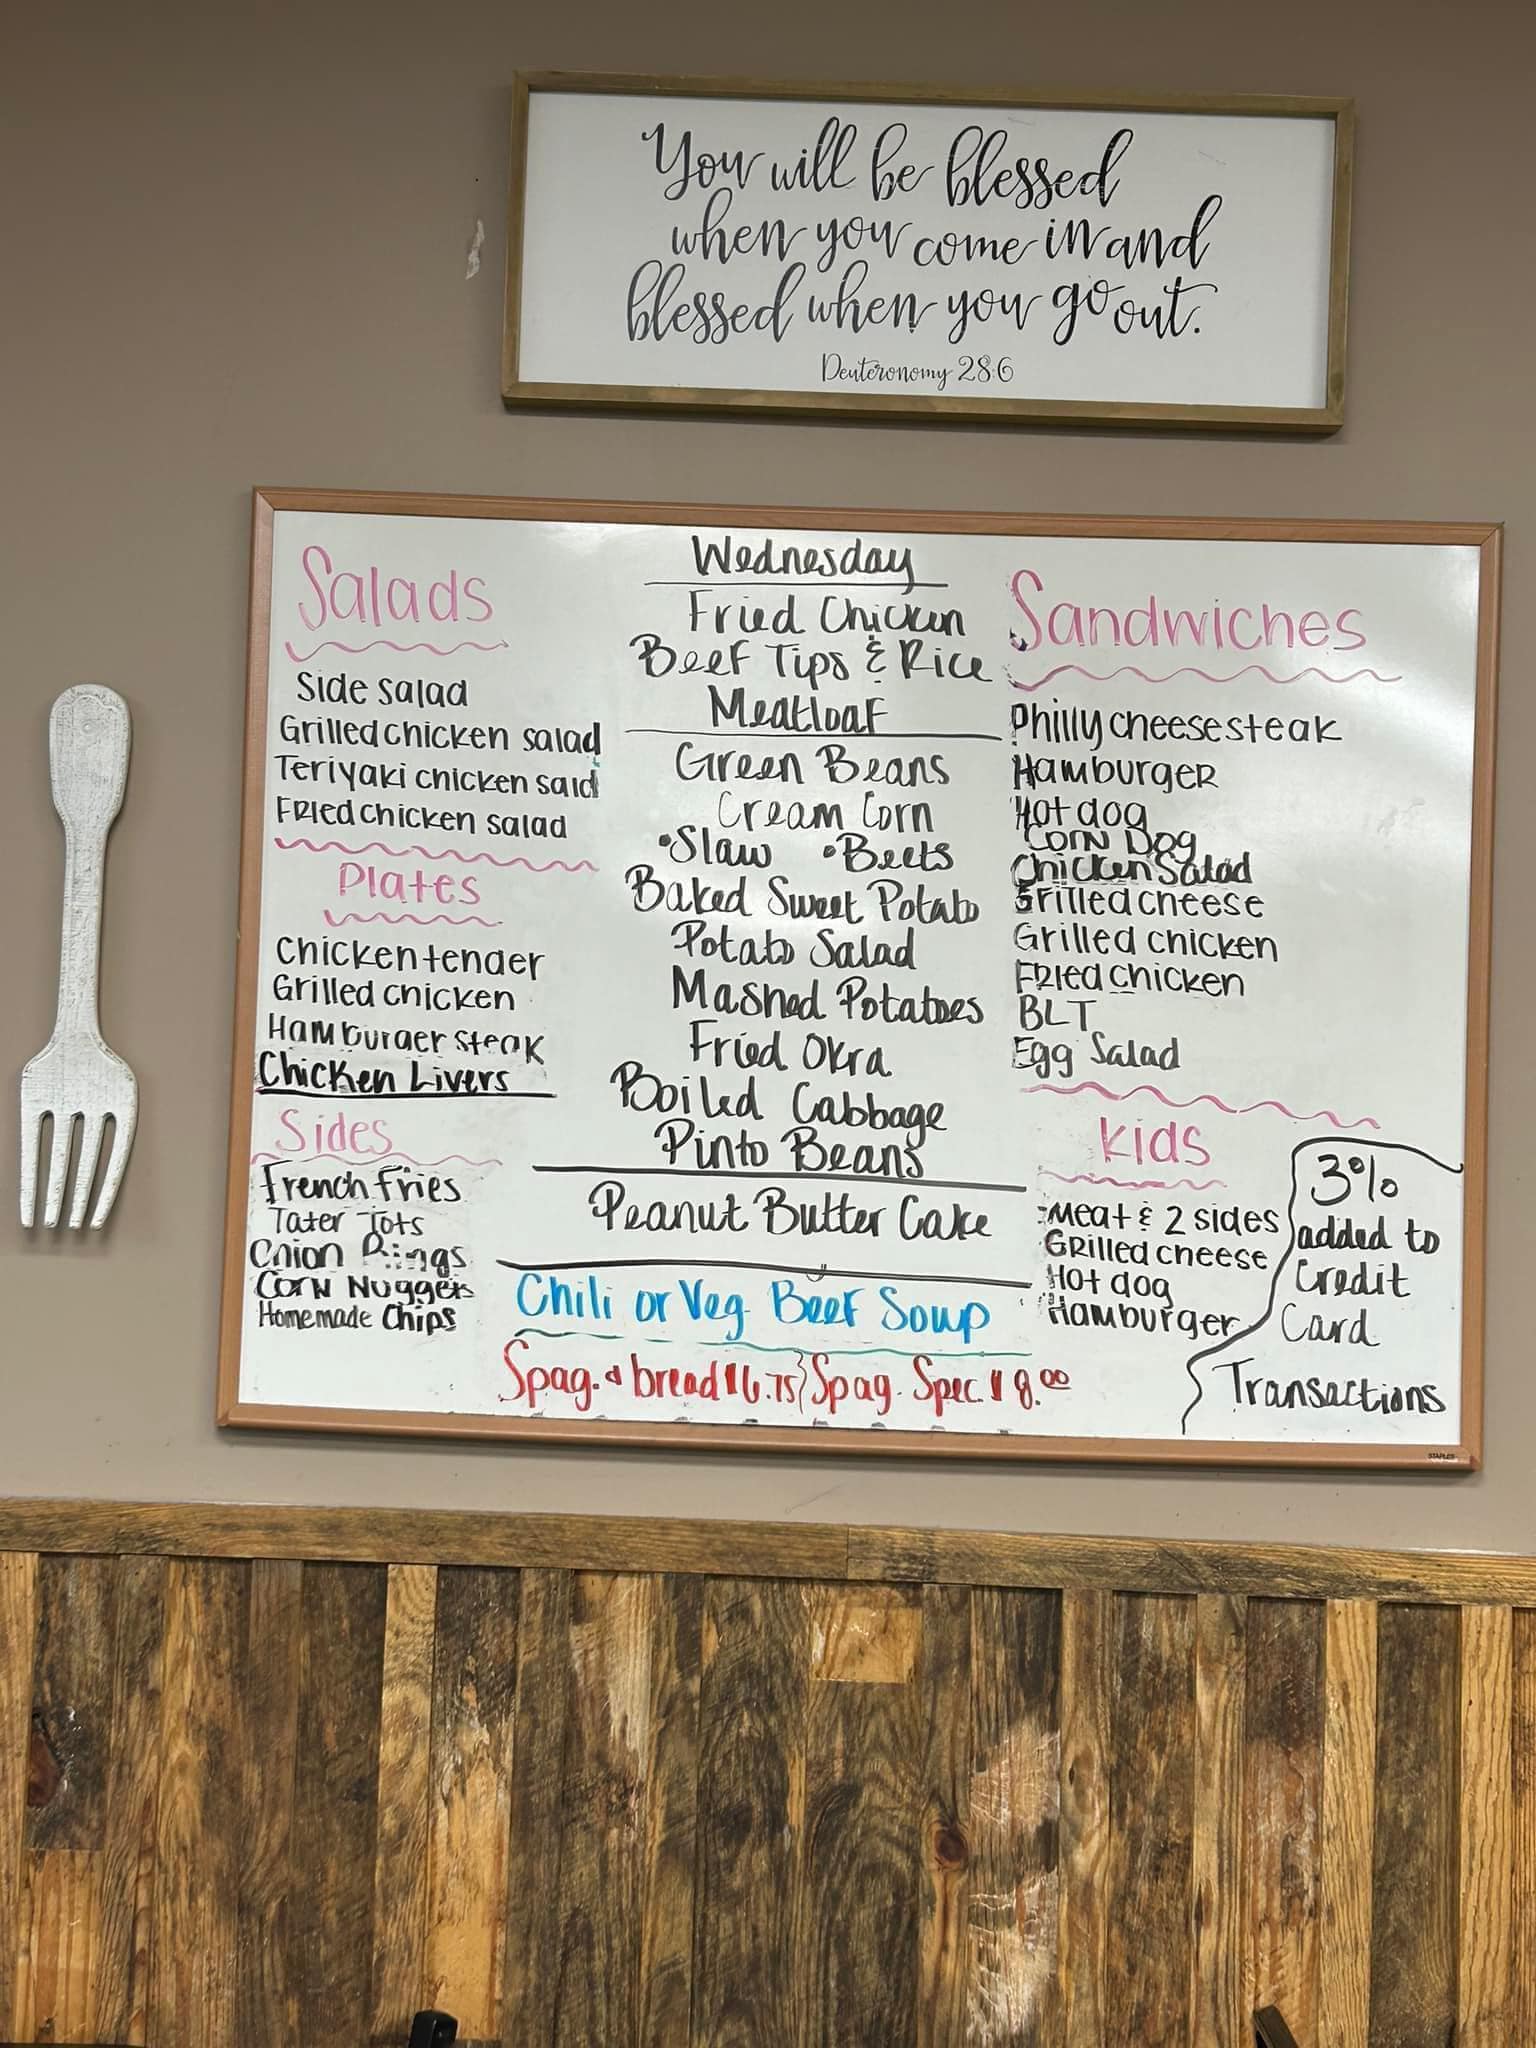 You will be blessed
when you come in and
blessed when you go out.
Deuteronomy 28:6
Salads
Side salad
Grilled chicken salad
Teriyaki chicken sald
Fried chicken salad
Plates
Chicken tender
Grilled chicken
Hamburger steak
Chicken Livers
Sides
French Fries
Tater Tots
Onion Rings
Corn Nuggets
Homemade Chips
Wednesday
Fried Chicken
Beef Tips & Rice
Meatloaf
Green Beans
Cream Corn
•Slaw •Beets
Baked Sweet Potato
Potato Salad
Mashed Potatoes
Fried Okra
Boiled Cabbage
Pinto Beans
Peanut Butter Cake
Chili or Veg Beef Soup
Spag. & bread $6.75 Spag. Spec. $8.00
Sandwiches
Philly cheesesteak
Hamburger
Hot dog
Corn Dog
Chicken Salad
Grilled cheese
Grilled chicken
Fried chicken
BLT
Egg Salad
Kids
Meat & 2 sides
Grilled cheese
Hot dog
Hamburger
3%
added to
Credit
Card
Transactions
STAPLES